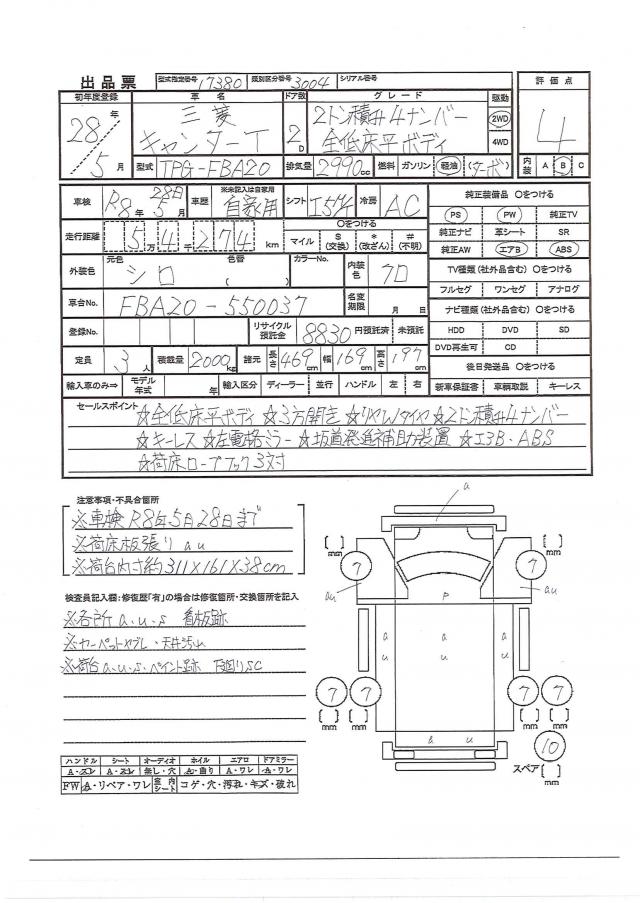 出品票 型式指定番号 17380 類別区分番号 3004 シリアル番号
初年度登録 車名 ドア数 グレード 駆動 評価点
28年 三菱 2D 2トン積み4ナンバー 2WD 4
5月 キャンターT 全低床平ボディ 4WD
型式 TPG-FBA20 排気量 2990cc 燃料 ガソリン 軽油 (ターボ) 内装 A B C
車検 R8年5月28日 車歴 ※未記入は自家用 自家用 シフト I5/4 冷房 AC 純正装備品 ○をつける
PS PW 純正TV
走行距離 5万4千274km ○をつける マイル $(交換) *(改ざん) #(不明) 純正ナビ 革シート SR
純正AW エアB ABS
外装色 元色 シロ 色替 ( ) カラーNo. 内装色 クロ TV種類(社外品含む) ○をつける
フルセグ ワンセグ アナログ
車台No. FBA20-550037 名変期限 月 日 ナビ種類(社外品含む) ○をつける
登録No. リサイクル預託金 8830円預託済 未預託 HDD DVD SD
DVD再生可 CD
定員 3人 積載量 2000kg 諸元 長さ 469cm 幅 169cm 高さ 197cm 後日発送品 ○をつける
輸入車のみ⇒ モデル年式 年 輸入区分 ディーラー 並行 ハンドル 左 右 新車保証書 車輌取説 キーレス
セールスポイント
☆全低床平ボディ ☆3方開き ☆リヤWタイヤ ☆2トン積み4ナンバー
☆キーレス ☆左電格ミラー ☆坂道発進補助装置 ☆エアB・ABS
☆荷床ロープフック3対
注意事項・不具合箇所
※車検R8年5月28日まで
※荷床板張り au
※荷台内寸約311×161×38cm
検査員記入欄:修復歴「有」の場合は修復箇所・交換箇所を記入
※各所a.u.s 看板跡
※カーペットヤブレ・天井汚れ
※荷台a.u.s・ペイント跡 下廻りSC
ハンドル シート オーディオ ホイル エアロ ドアミラー
A・スレ A・スレ 無し・穴 A・曲り A・ワレ A・ワレ
FW A・リペア・ワレ 室内シート コゲ・穴・汚れ・キズ・破れ
a
[ ] mm
[ ] mm
7
7
au
P
au
u
a
7 7 7 7
[ ] mm
[ ] mm
[ ] mm
[ ] mm
a
u
a u
10
スペア [ ] mm